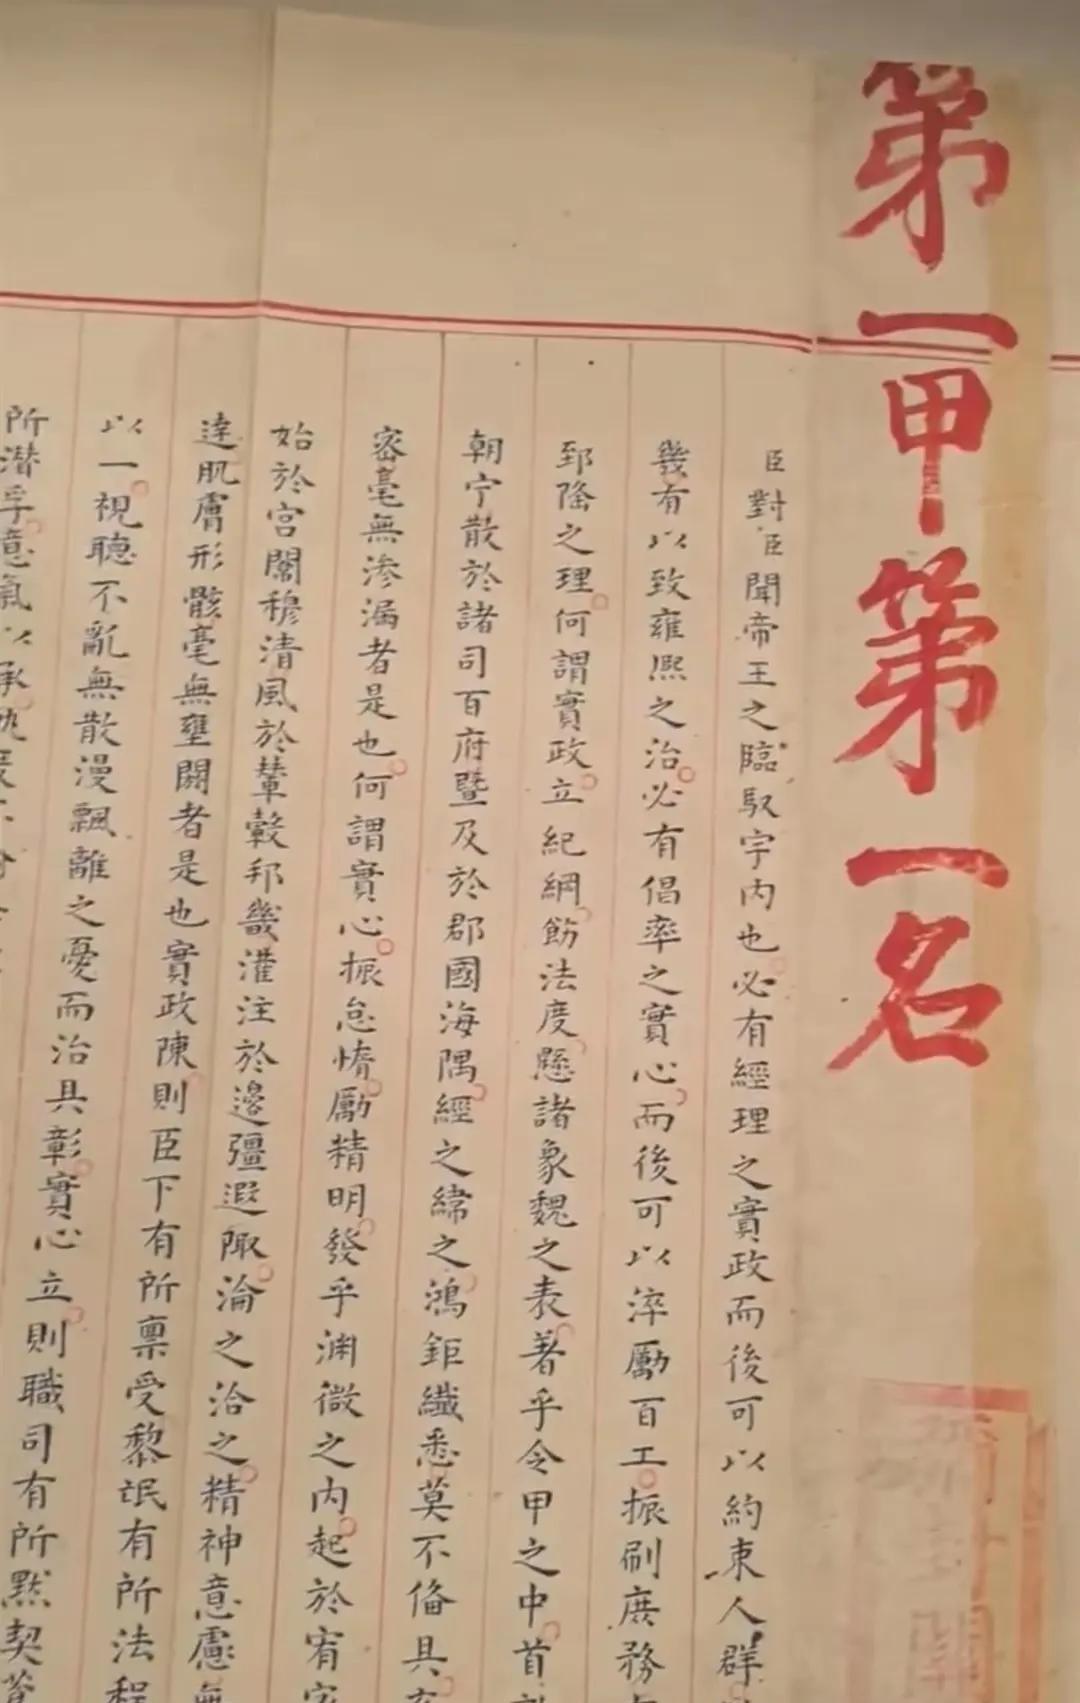 第一甲第一名
臣對臣聞帝王之臨馭宇內也必有經理之實政而後可以約束人群
幾有以致雍熙之治必有倡率之實心而後可以淬勵百工振刷庶務
郅隆之理何謂實政立紀綱飭法度懸諸象魏之表著乎令甲之中首
朝宁散於諸司百府暨及於郡國海隅經之緯之鴻鉅纖悉莫不俻具
密毫無滲漏者是也何謂實心振怠惰勵精明發乎渊微之內起於宥
始於宮闈穆清風於輦轂邦畿灌注於邊疆遐陬淪之洽之精神意慮無
達肌膚形骸毫無壅閼者是也實政陳則臣下有所禀受黎氓有所法程
以一視聽不亂無散漫飄離之憂而治具彰實心立則職司有所默契
所潛孚意氣以承